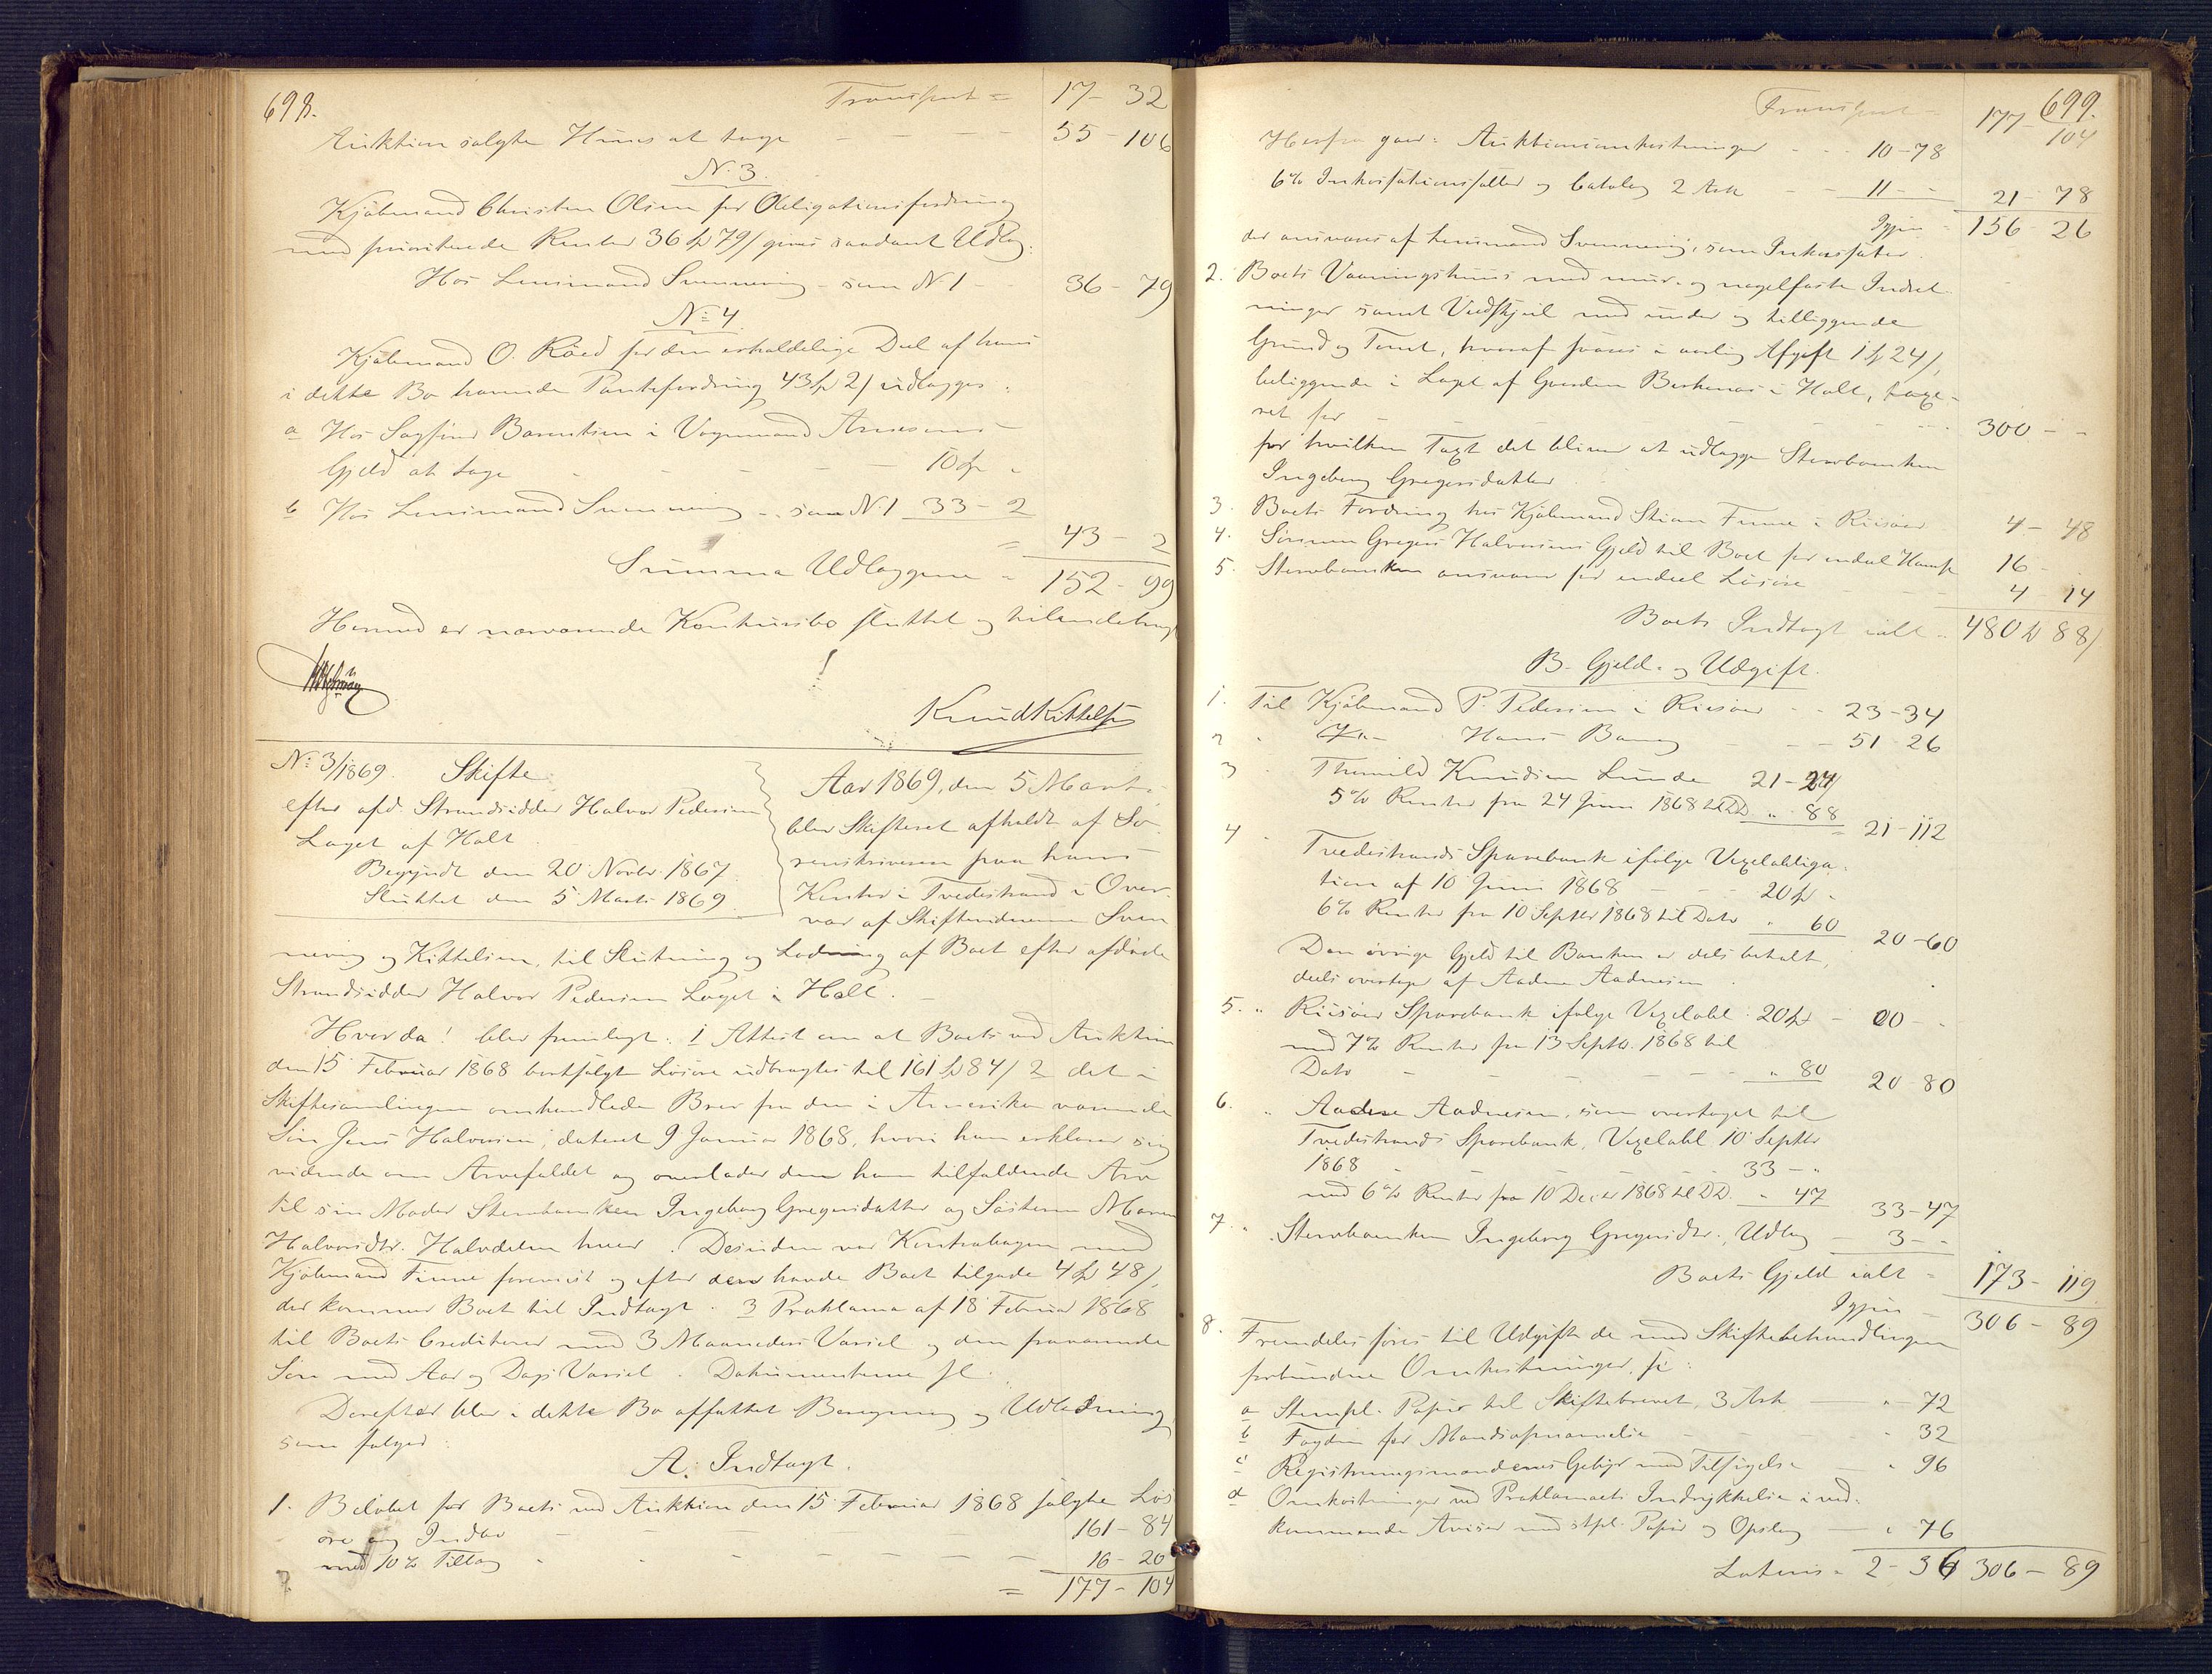 698.
Transport = 17 - 32
Auktion solgte Huus at tage - - - - 55 - 106
N. 3.
Kjøbmand Christen Olsen for Obligationsfordring
med prioriterede Renter 36 Sp 79 / gives saadant Udlæg:
Hos Lensmand Svenning - som N 1 - - 36 - 79
No 4.
Kjøbmand O. Röed for den erholdelige Deel af hans
i dette Bo havende Pantefordring 43 Sp 2 / udlægges:
a Hos Sagfører Barentsen i Vognmand Arnesens
Gjeld at tage - - - - - 10 Sp "
b Hos Lensmand Svenning - som N 1 33 - 2
= 43 - 2
Summa Udlæggene = 152 - 99
Hermed er nærværende Konkursbo sluttet og tilendebragt
Knud Kittelsen
No 3/1869. Skifte
efter afd. Strandsidder Halvor Pedersen
Laget af Holt.
Begyndt den 20 Novbr. 1867.
Sluttet den 5 Marts 1869.
Aar 1869, den 5 Marts,
blev Skifteret afholdt af So-
renskriveren paa hans
Kontor i Tvedestrand i Over-
vær af Skiftevidnerne Sven
nevig og Kittelsen, til Slutning og Lodning af Boet efter afdøde
Strandsidder Halvor Pedersen Laget i Holt. -
Hvorda! blev fremlagt: 1 Attest om at Boets ved Auktion
den 15 Februar 1868 bortsolgte Løsøre udbragtes til 161 Sp 84 / 2 det i
Skiftesamlingen omhandlede Brev fra den i Amerika værende
Søn Jens Halvorsen, dateret 9 Januar 1868, hvori han erklærer sig
vidende om Arvefaldet og overlader den ham tilfaldende Arv
til sin Moder Stervboenken Ingeborg Gregersdatter og Søsteren Maren
Halvorsdtr. Halvdelen hver. Desuden var Kontrabogen med
Kjøbmand Finne foreviist og efter den havde Boet tilgode 4 Sp 48 /,
der kommer Boet til Indtægt. 3 Proklama af 18 Februar 1868
til Boets Creditorer med 3 Maaneders Varsel og den fraværende
Søn med Aar og Dags Varsel. Dokumenterne fl.
Derefter blev i dette Bo affattet Beregning og Udlodning
som følger:
A. Indtægt.
1. Beløbet for Boets ved Auktion den 15 Februar 1868 solgte Løs
øre og Indbo - - - - 161 - 84
med 10 % Tillæg - - - - 16 - 20
= 177 - 104
699.
Transport = 177 - 104
Herfra gaar: Auktionsomkostninger - - - 10 - 78
6 % Inkassationssalær og Catalog 2 Ark - - 11 - - 21 - 78
Igjen = 156 - 26
der ansvares af Lensmand Svenning, som Inkassator.
2. Boets Vaaningshuus med muur- og nagelfaste Indret-
ninger samt Vedskjul med under og tilliggende
Grund og Tomt, hvoraf svares i aarlig Afgift 1 Sp 24 /,
beliggende i Laget af Gaarden Berkenæs i Holt, taxe-
ret for - - - - - - 300 - -
for hvilken Taxt det bliver at udlægge Stervboenken
Ingeborg Gregersdatter.
3. Boets Fordring hos Kjøbmand Stian Finne i Riisøer 4 - 48
4. Sønnen Gregers Halvorsens Gjeld til Boet for endeel Hamp 16 -
5. Stervboenken ansvarer for endeel Løsøre - - - 4 - 14
Boets Indtægt ialt = 480 Sp 88 /
B. Gjeld- og Udgift.
1. Til Kjøbmand P. Pedersen i Riisøer - - 23 - 34
2 " Hans Bang - - - 51 - 26
3 " Thorvild Knudsen Lunde 21 - 24 /
5 % Renter fra 24 Juni 1868 til DD. " 88
= 21 - 112
4 " Tvedestrands Sparebank ifølge Vexelobliga-
tion af 10 Juni 1868 - - - 20 Sp "
6 % Renter fra 10 Septbr 1868 til Dato " 60
20 - 60
Den øvrige Gjeld til Banken er dels betalt,
deels overtaget af Aadne Aadnesen.
5. " Riisøer Sparebank ifølge Vexelobl. 20 Sp -
med 7 % Renter fra 13 Septbr. 1868 til
Dato - - - - - " 80 20 - 80
6. " Aadne Aadnesen, som overtaget til
Tvedestrands Sparebank, Vexelobl. 10 Septbr
1868 - - - - - 33 - "
med 6 % Renter fra 10 Decbr 1868 til DD. " 47
33 - 47
7. " Stervboenken Ingeborg Gregersdtr., Udlæg - 3 - -
Boets Gjeld ialt = 173 - 119
Igjen - 306 - 89
8. Fremdeles føres til Udgift de med Skiftebehandlingen
forbundne Omkostninger, som:
a Stempl. Papir til Skiftebrevet, 3 Ark - " - 72
b Fogden for Mandsopnævnelse - - - " 32
c Registreringsmændenes Gebyr med Tilsigelse - " 96
d Omkostninger ved Proklamaets Indrykkelse i ved-
kommende Aviser med stpl. Papir og Opslag - " 76
Lateris = 2 - 36 306 - 89